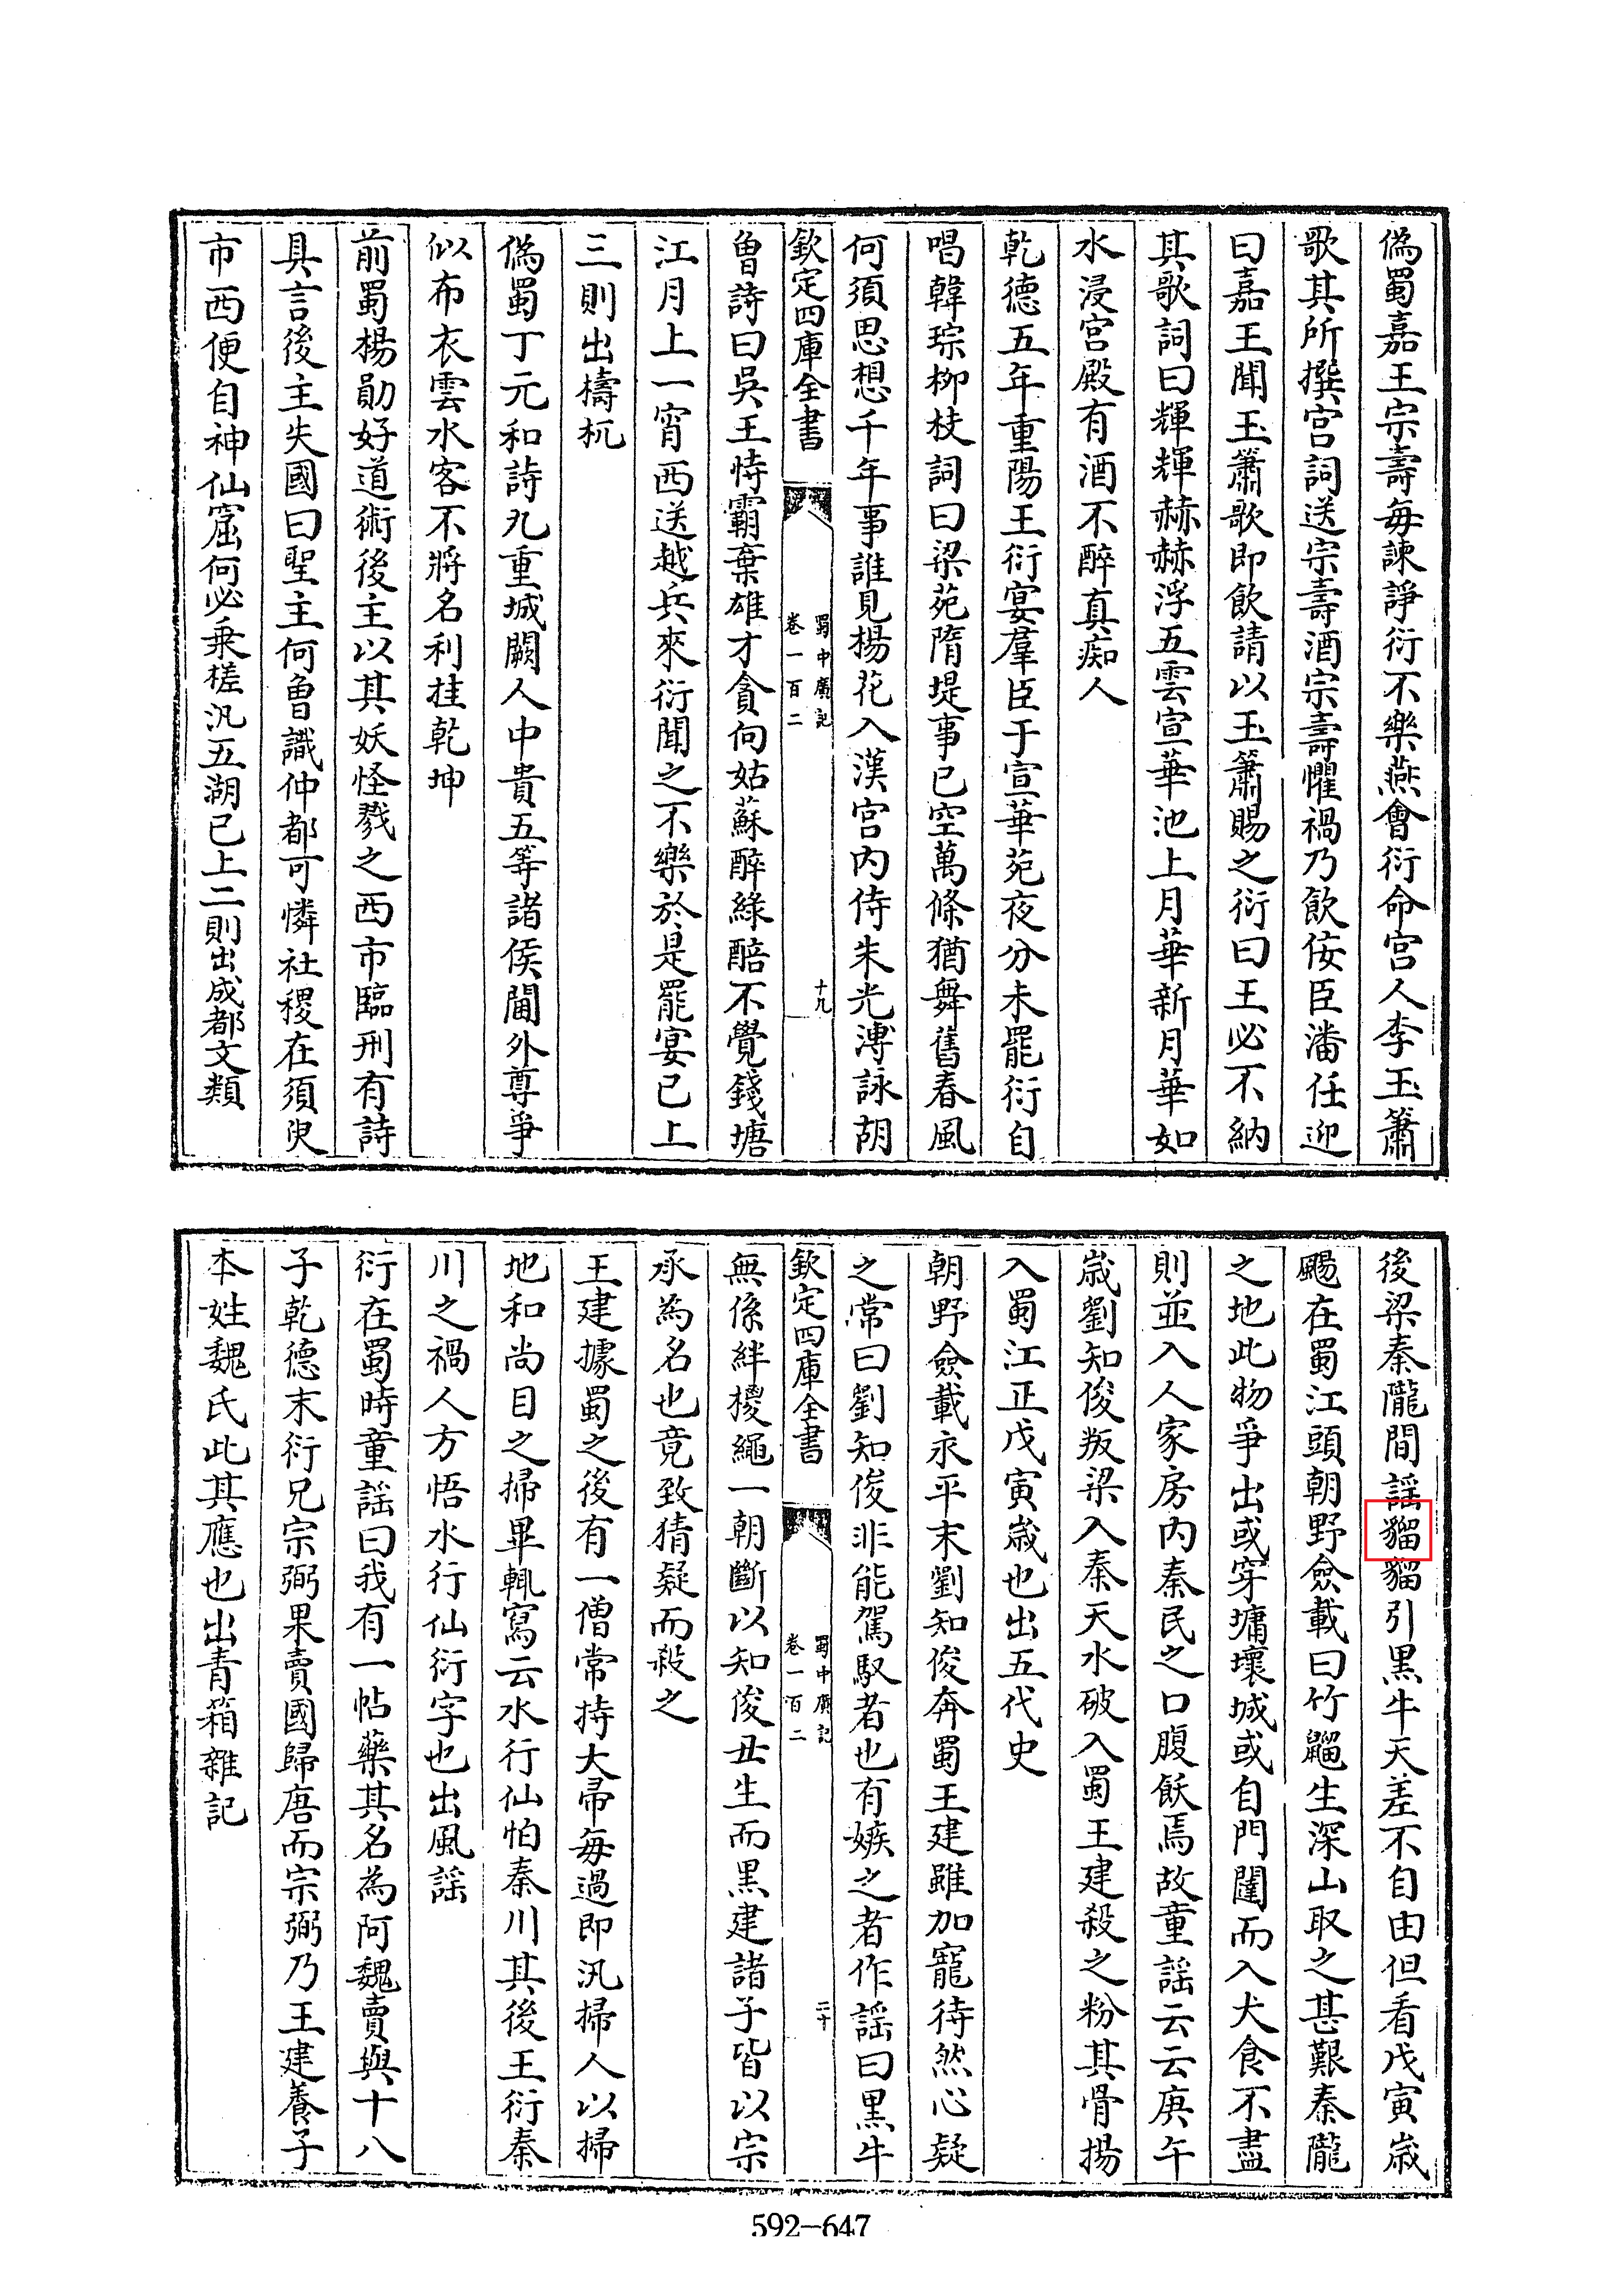 偽蜀嘉王宗壽每諫諍衍不樂燕會衍命宫人李玉簫
歌其所撰宫詞送宗壽酒宗壽懼禍乃飲佞臣潘任迎
曰嘉王聞玉簫歌即飲請以玉簫賜之衍曰王必不納
其歌詞曰輝輝赫赫浮五雲宣華池上月華新月華如
水浸宫殿有酒不醉真痴人
乾德五年重陽王衍宴羣臣于宣華苑夜分未罷衍自
唱韓琮柳枝詞曰梁苑隋堤事已空萬條猶舞舊春風
何須思想千年事誰見楊花入漢宫内侍朱光溥詠胡
欽定四庫全書
蜀中廣記
卷一百二
十九
曾詩曰吳王恃霸棄雄才貪向姑蘇醉綠醅不覺錢塘
江月上一宵西送越兵來衍聞之不樂於是罷宴已上
三則出檮杌
偽蜀丁元和詩九重城闕人中貴五等諸侯閫外尊爭
似布衣雲水客不將名利挂乾坤
前蜀楊勛好道術後主以其妖怪戮之西市臨刑有詩
具言後主失國曰聖主何曽識仲都可憐社稷在須臾
市西便自神仙窟何必乘槎汎五湖已上二則出成都文類
後梁秦隴間謡䶉貓引黑牛天差不自由但看戊寅歳
颺在蜀江頭朝野僉載曰竹䶉生深山取之甚艱秦隴
之地此物爭出或穿墉壞城或自門闥而入犬食不盡
則並入人家房内秦民之口腹飫焉故童謡云云庚午
歳劉知俊叛梁入秦天水破入蜀王建殺之粉其骨揚
入蜀江正戊寅歳也出五代史
朝野僉載永平末劉知俊奔蜀王建雖加寵待然心疑
之常曰劉知俊非能駕馭者也有嫉之者作謡曰黒牛
欽定四庫全書
蜀中廣記
卷一百二
二十
無係絆椶繩一朝斷以知俊丑生而黒建諸子皆以宗
承為名也竟致猜疑而殺之
王建據蜀之後有一僧常持大帚每過即汛掃人以掃
地和尚目之掃畢輒寫云水行仙怕秦川其後王衍秦
川之禍人方悟水行仙衍字也出風謡
衍在蜀時童謡曰我有一帖藥其名為阿魏賣與十八
子乾德末衍兄宗弼果賣國歸唐而宗弼乃王建養子
本姓魏氏此其應也出青箱雜記
592-647